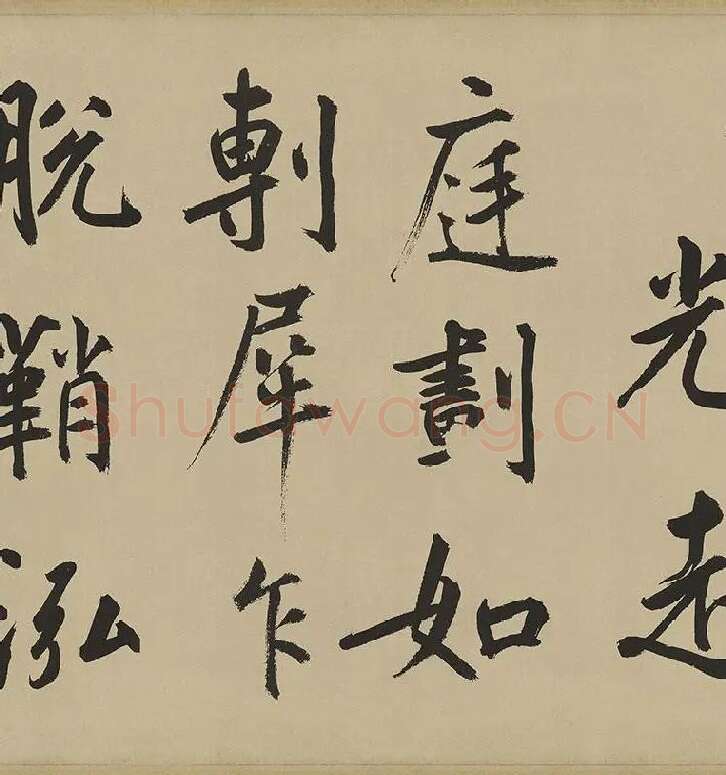 光
庭劃如
剸犀乍
脫鞘泓
Shufawang.CN